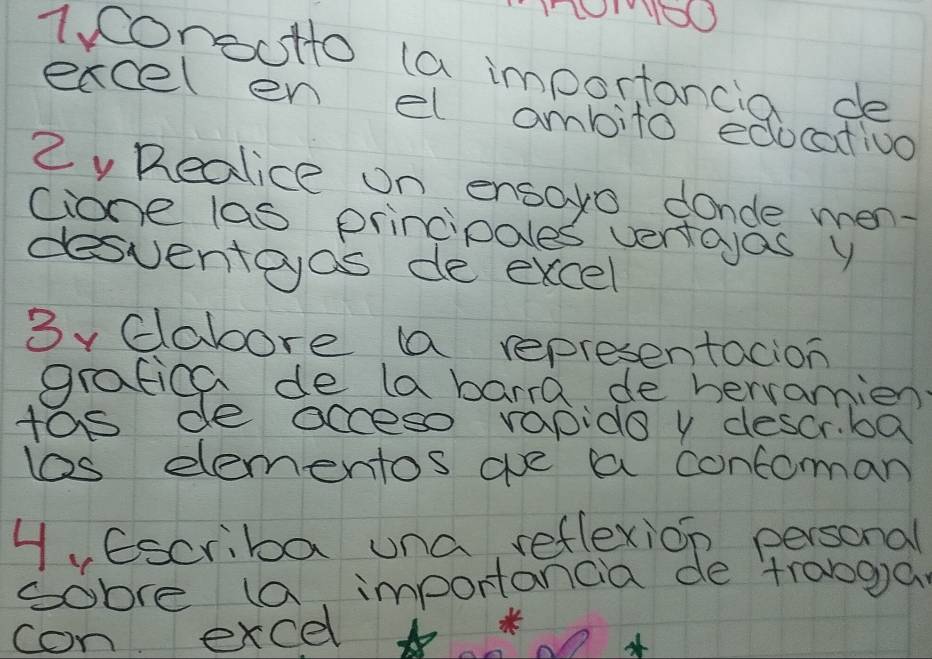 1. Consulto la importancia de
excel en el ambito educativo
2. Realice un ensayo donde men-
cione las principales ventajas y
desventajas de excel
3. elabore la representacion
grafica de la barra de herramien-
tas de acceso rapido y describa
los elementos que la conforman
4. Escriba una reflexion personal
sobre la importancia de trabajar
con excel